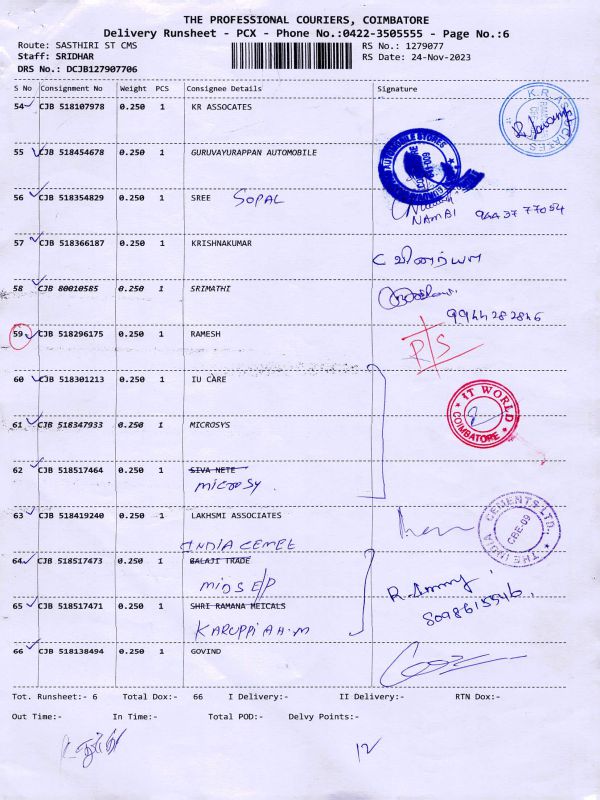 THE PROFESSIONAL COURIERS, COIMBATORE
Delivery Runsheet - PCX - Phone No.:0422-3505555 - Page No.:6
Route: SASTHIRI ST CMS RS No.: 1279077
Staff: SRIDHAR RS Date: 24-Nov-2023
DRS No.: DCJB127907706
S No Consignment No Weight PCS Consignee Details Signature
54 CJB 518107978 0.250 1 KR ASSOCATES
55 CJB 518454678 0.250 1 GURUVAYURAPPAN AUTOMOBILE
56 CJB 518354829 0.250 1 SREE GOPAL NAMBI 94437 77054
57 CJB 518366187 0.250 1 KRISHNAKUMAR
58 CJB 80010585 0.250 1 SRIMATHI 9944282846
59 CJB 518296175 0.250 1 RAMESH P/S
60 CJB 518301213 0.250 1 IU CARE IT WORLD COIMBATORE
61 CJB 518347933 0.250 1 MICROSYS
62 CJB 518517464 0.250 1 SIVA NETE
MICROSY.
63 CJB 518419240 0.250 1 LAKHSMI ASSOCIATES THE INDIA CEMENTS LTD., CBE-09
INDIA CEME
64 CJB 518517473 0.250 1 BALAJI TRADE
65 CJB 518517471 0.250 1 SHRI RAMANA MEICALS 8098615546.
KARUPPIAA.M
66 CJB 518138494 0.250 1 GOVIND
Tot. Runsheet:- 6 Total Dox:- 66 I Delivery:- II Delivery:- RTN Dox:-
Out Time:- In Time:- Total POD:- Delvy Points:-
12